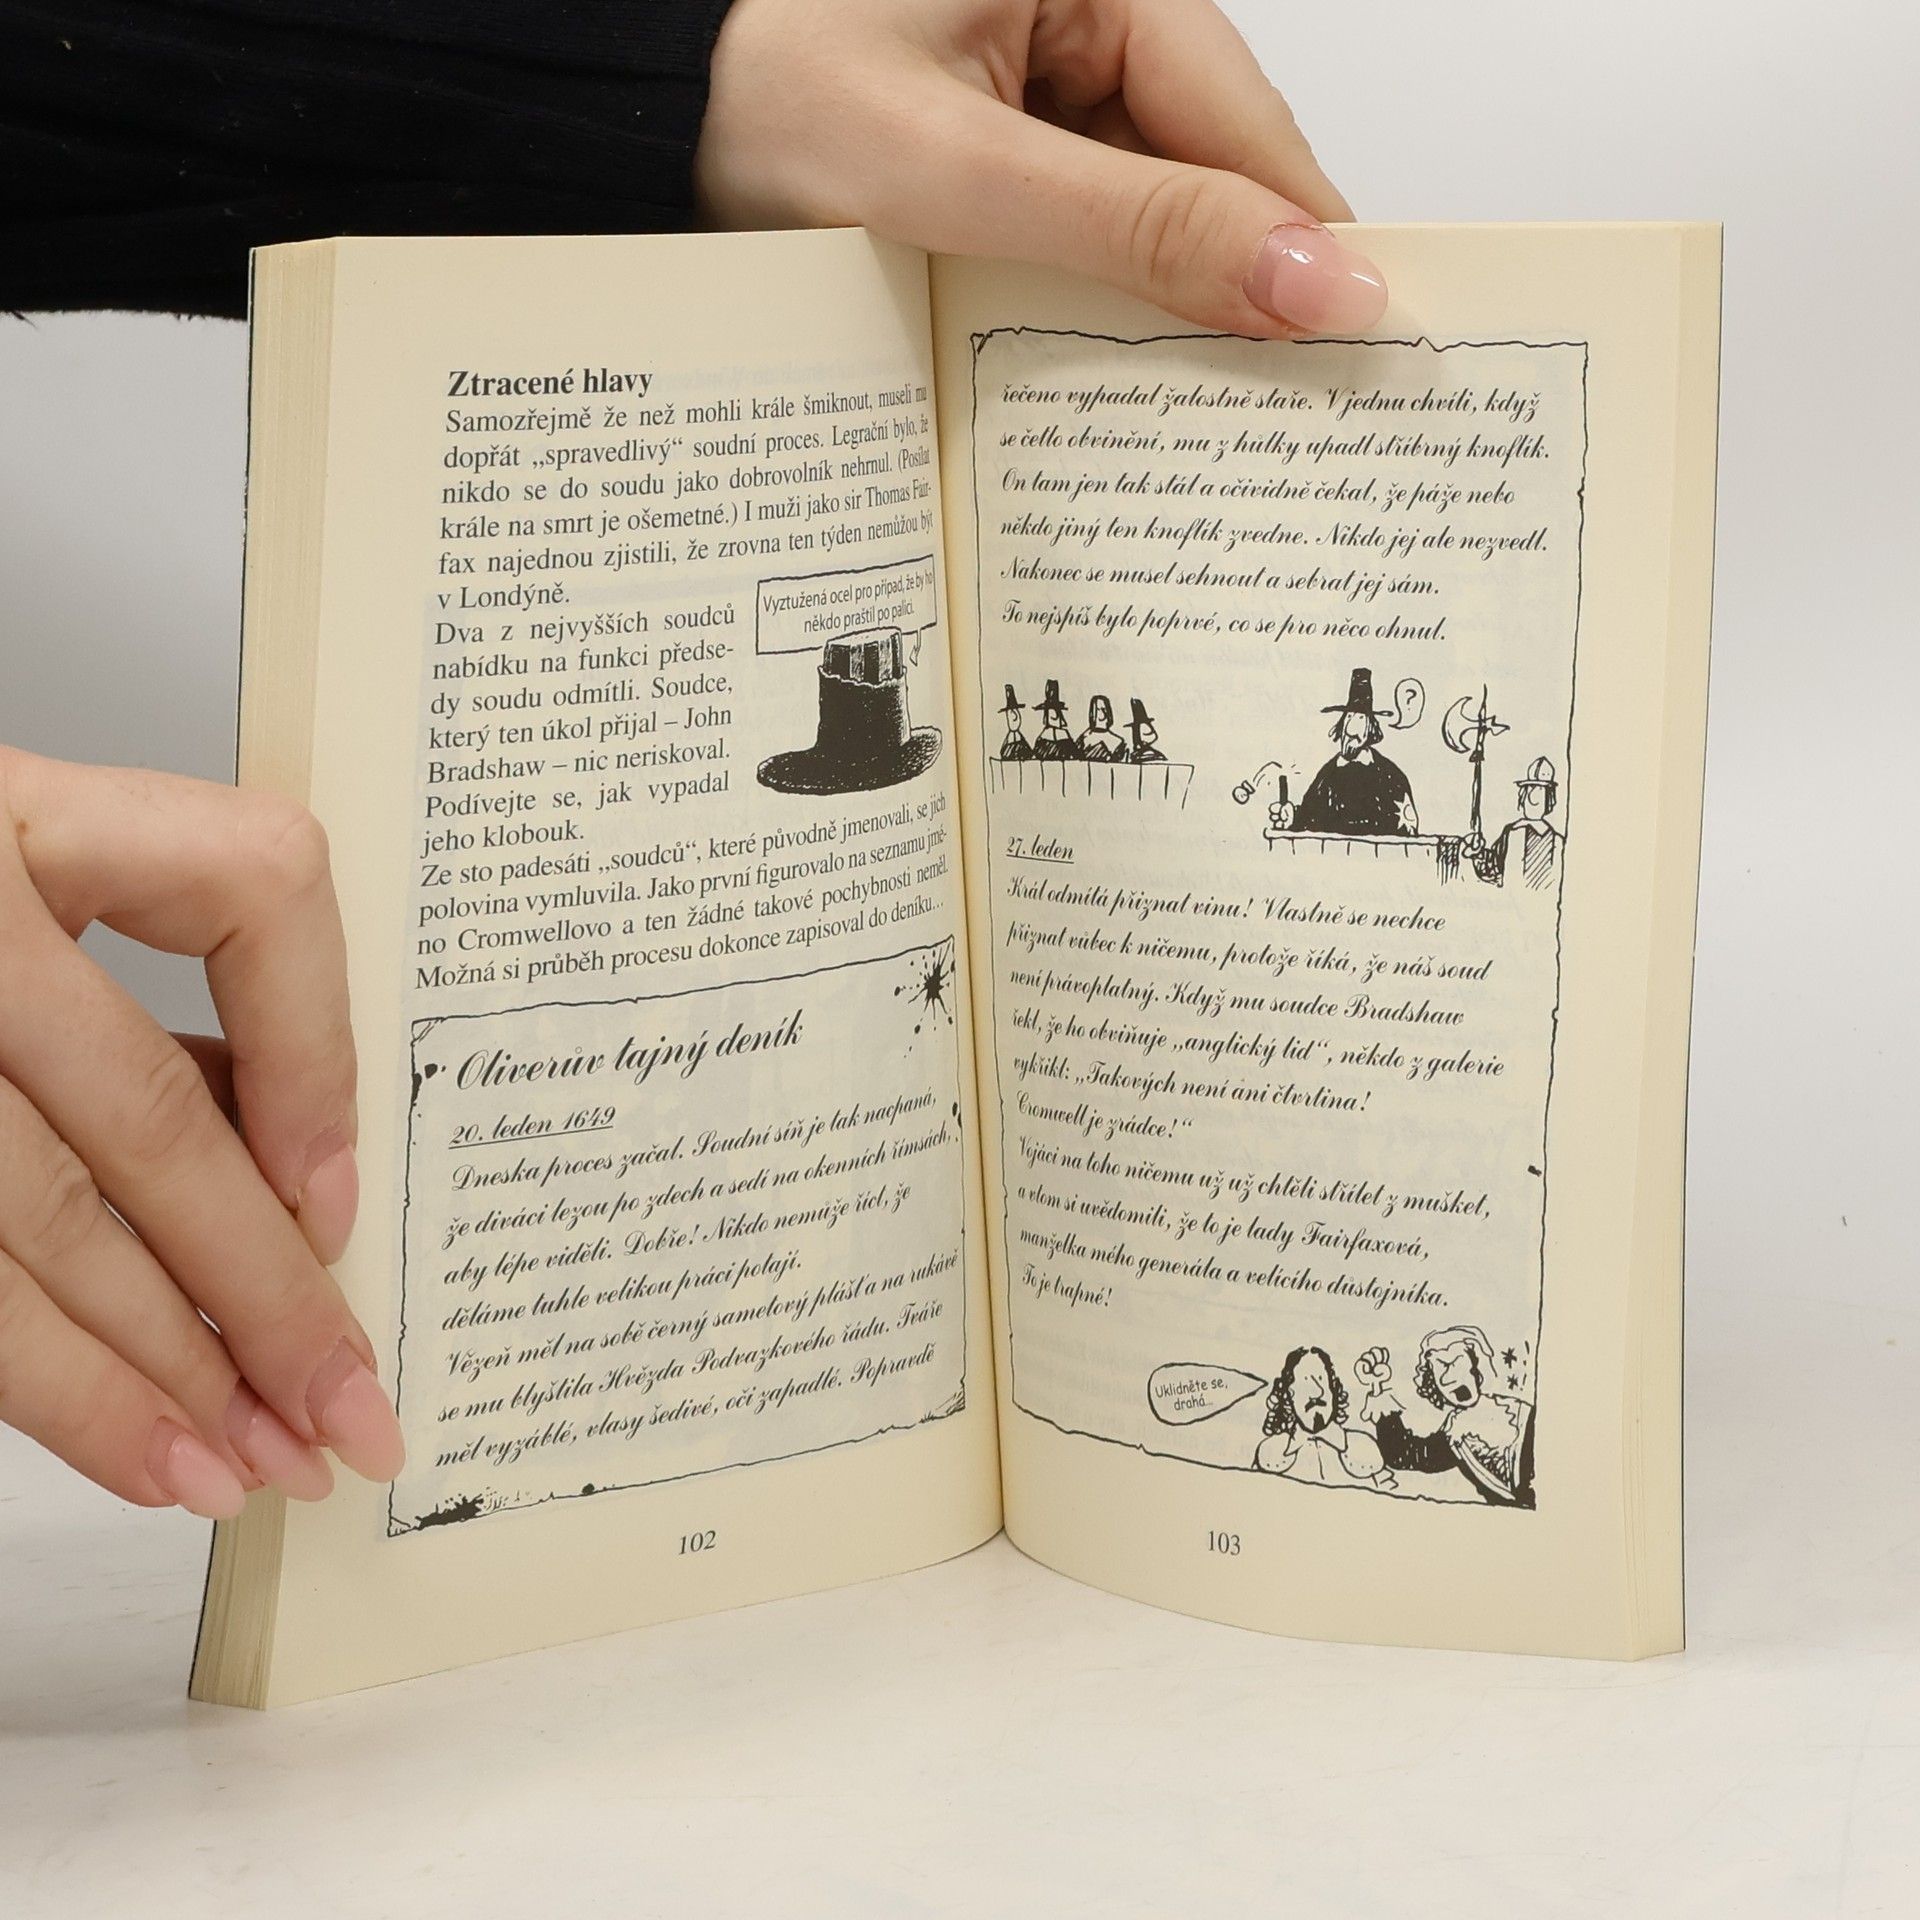 Ztracené hlavy
Samozřejmě že než mohli krále šmiknout, museli mu
dopřát „spravedlivý“ soudní proces. Legrační bylo, že
nikdo se do soudu jako dobrovolník nehrnul. (Posílat
krále na smrt je ošemetné.) I muži jako sir Thomas Fair-
fax najednou zjistili, že zrovna ten týden nemůžou být
v Londýně.
Dva z nejvyšších soudců
nabídku na funkci předse-
dy soudu odmítli. Soudce,
který ten úkol přijal – John
Bradshaw – nic neriskoval.
Podívejte se, jak vypadal
jeho klobouk.
Vyztužená ocel pro případ, že by ho
někdo praštil po palici.
Ze sto padesáti „soudců“, které původně jmenovali, se jich
polovina vymluvila. Jako první figurovalo na seznamu jmé-
no Cromwellovo a ten žádné takové pochybnosti neměl.
Možná si průběh procesu dokonce zapisoval do deníku...
Oliverův tajný deník
20. leden 1649
Dneska proces začal. Soudní síň je tak nacpaná,
že diváci lezou po zdech a sedí na okenních římsách,
aby lépe viděli. Dobře! Nikdo nemůže říct, že
děláme tuhle velikou práci potají.
Vězeň měl na sobě černý sametový plášť a na rukávě
se mu blyštila Hvězda Podvazkového řádu. Tváře
měl vyzáblé, vlasy šedivé, oči zapadlé. Popravdě
102
řečeno vypadal žalostně staře. V jednu chvíli, když
se četlo obvinění, mu z hůlky upadl stříbrný knoflík.
On tam jen tak stál a očividně čekal, že páže nebo
někdo jiný ten knoflík zvedne. Nikdo jej ale nezvedl.
Nakonec se musel sehnout a sebrat jej sám.
To nejspíš bylo poprvé, co se pro něco ohnul.
?
27. leden
Král odmítá přiznat vinu! Vlastně se nechce
přiznat vůbec k ničemu, protože říká, že náš soud
není právoplatný. Když mu soudce Bradshaw
řekl, že ho obviňuje „anglický lid“, někdo z galerie
vykřikl: „Takových není ani čtvrtina!
Cromwell je zrádce!“
Vojáci na toho ničemu už už chtěli střílet z mušket,
a vtom si uvědomili, že to je lady Fairfaxová,
manželka mého generála a velícího důstojníka.
To je trapné!
Uklidněte se,
drahá...
103